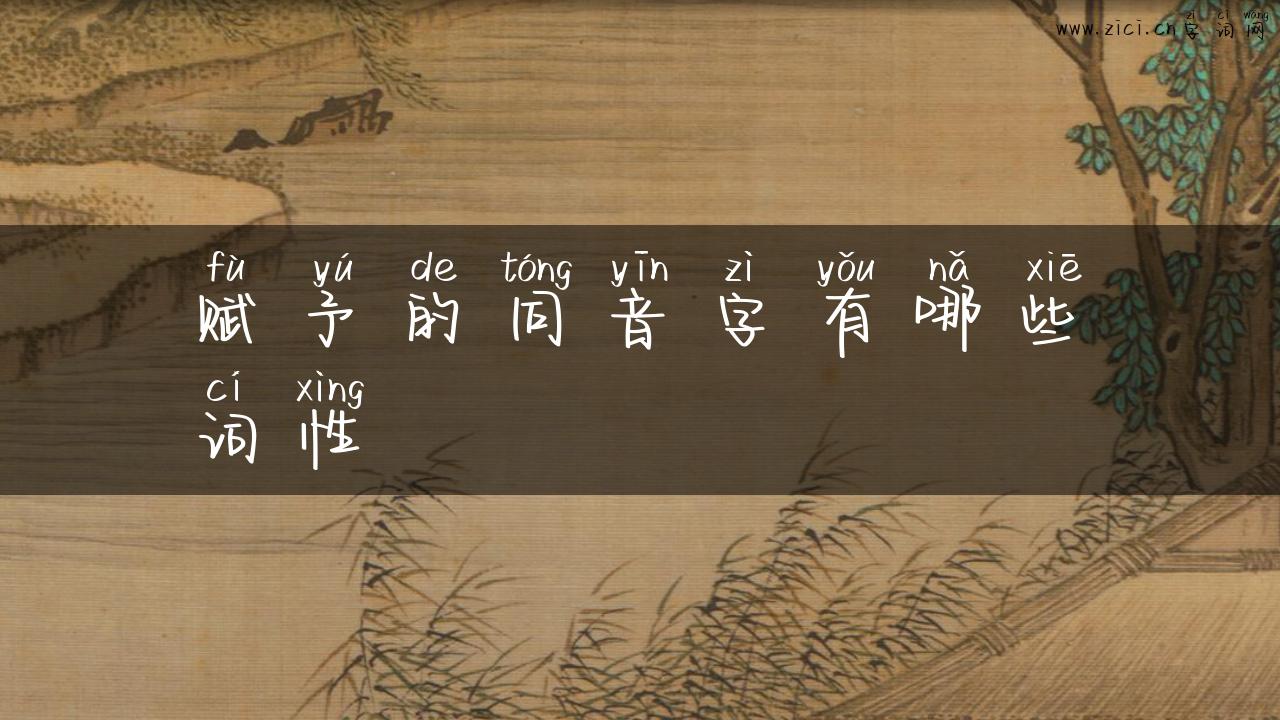 zì cí wǎng
www.zici.cn字词网
fù yú de tóng yīn zì yǒu nǎ xiē
赋予的同音字有哪些
cí xìng
词性